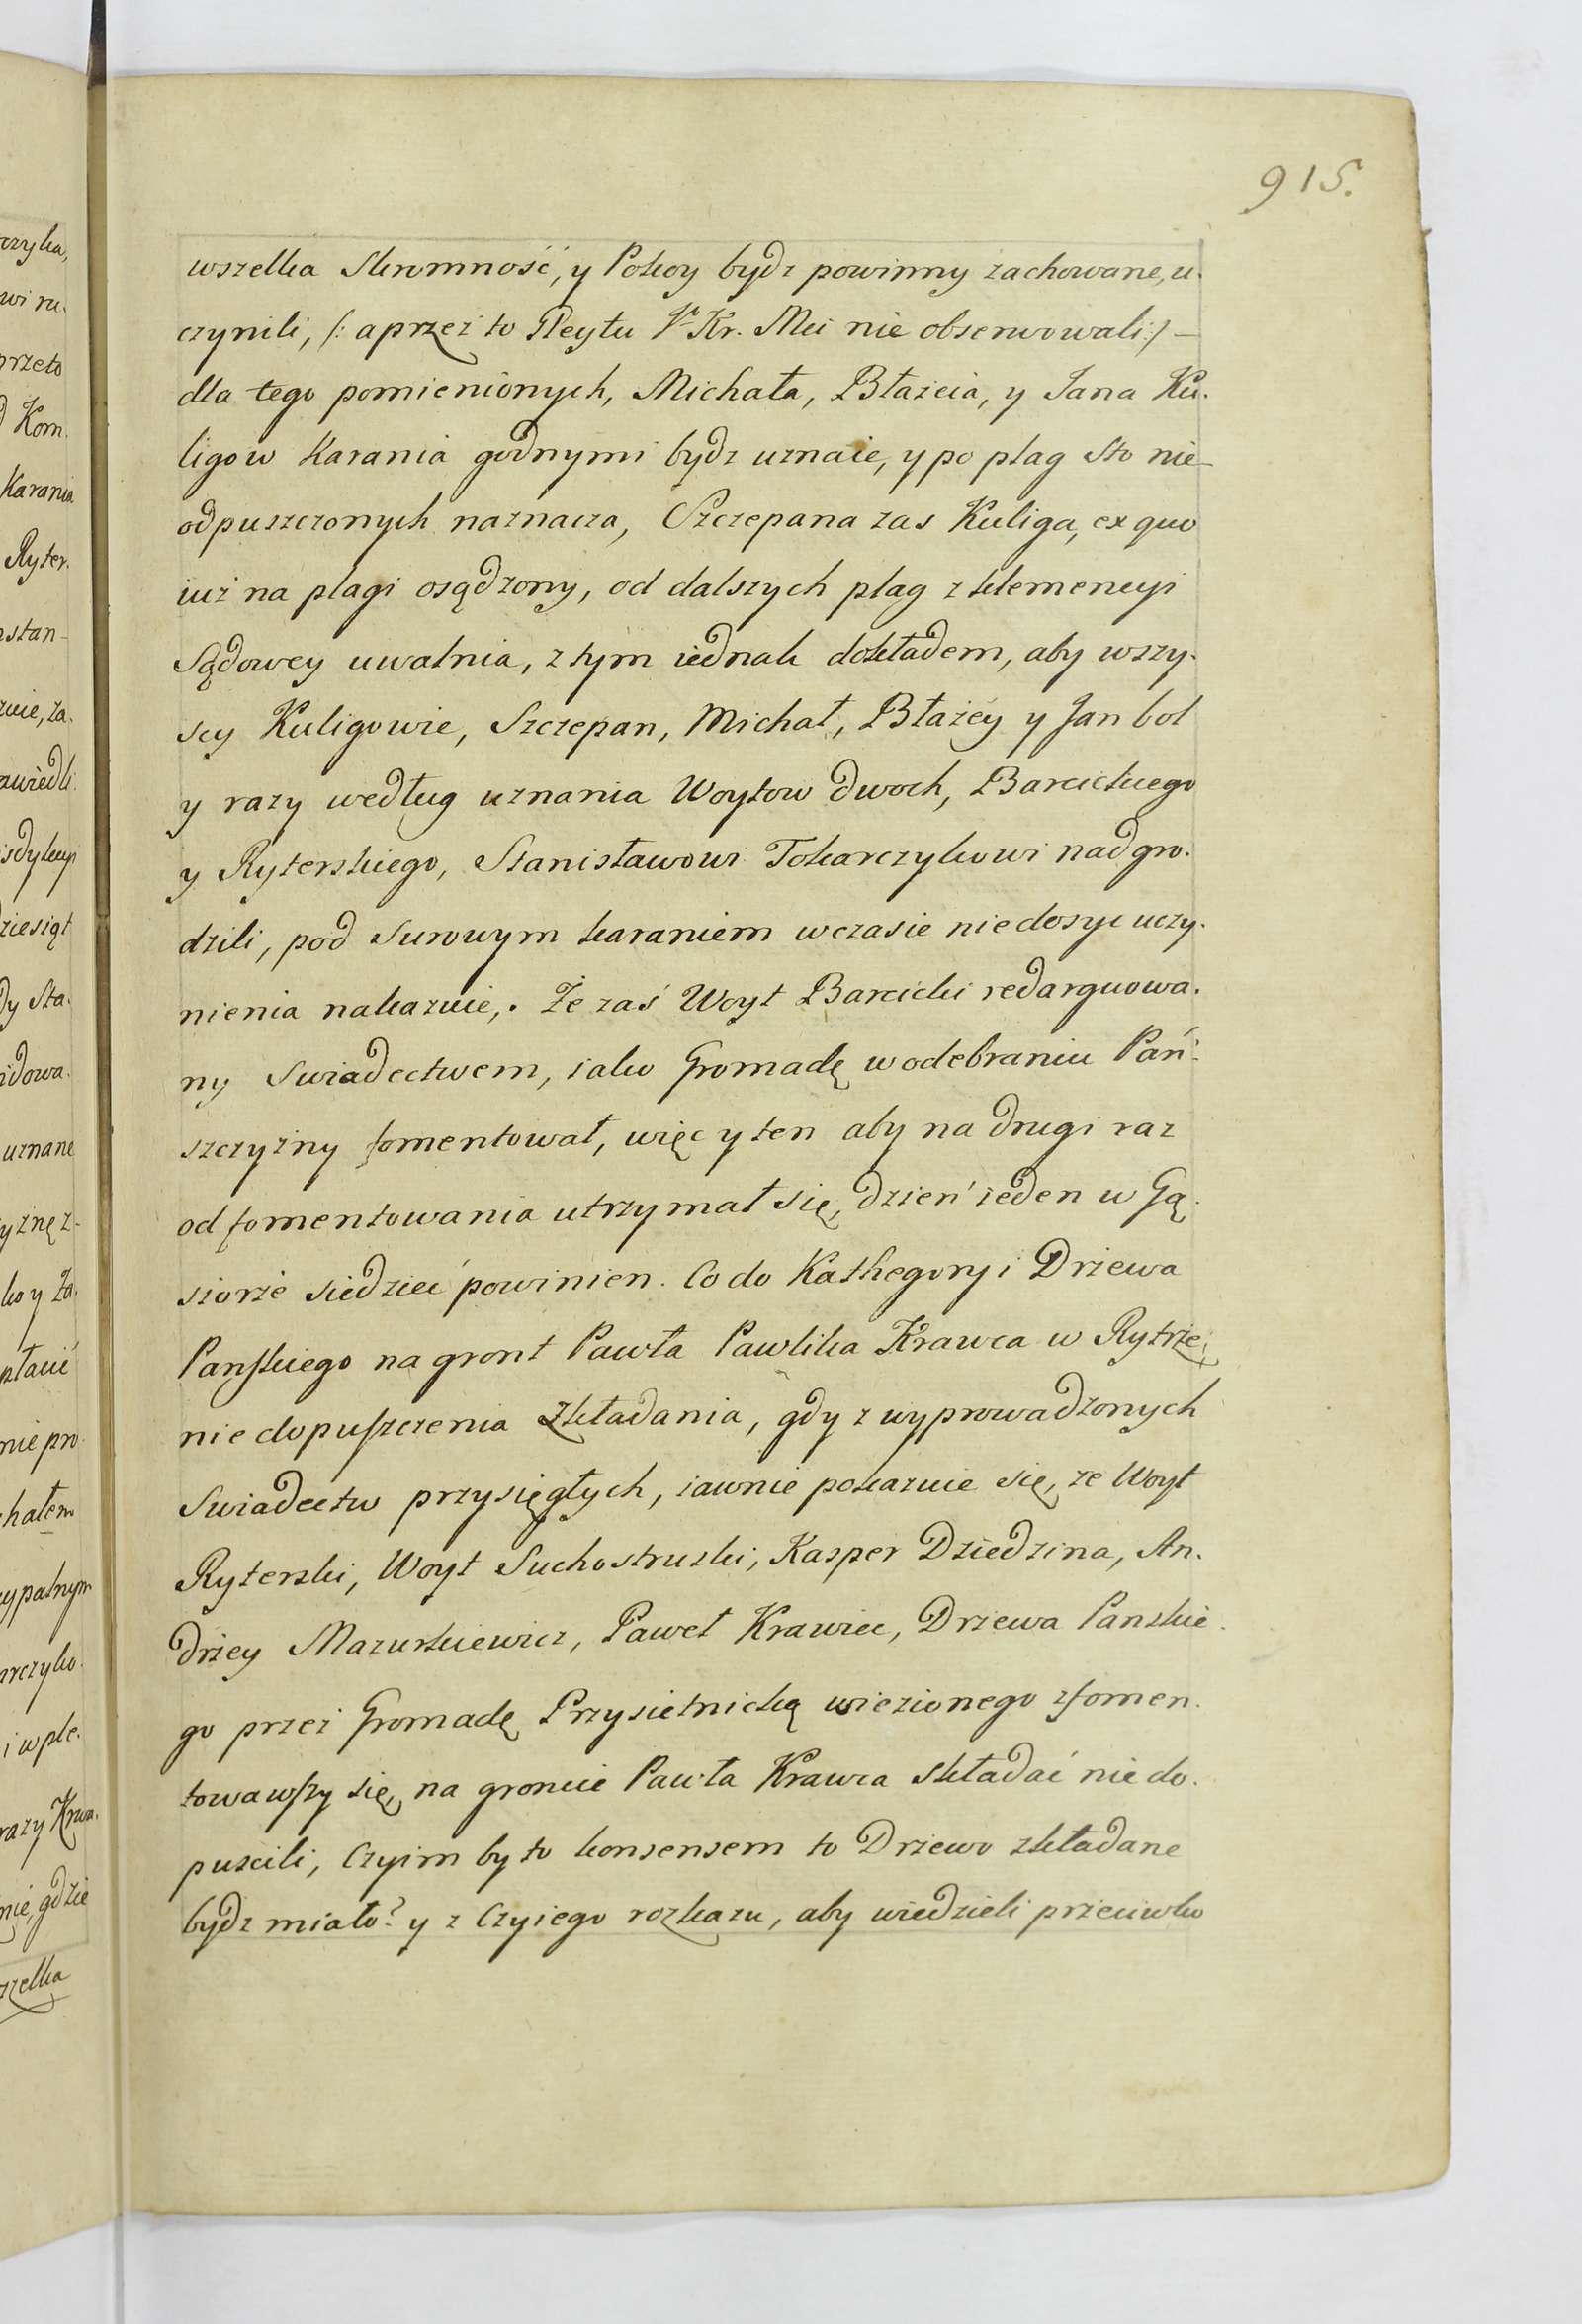 915.
wszelka Skromność, y Pokoy bydz powinny zachowane, u-
czynili, /: a przez to Reytu Kr. Mci nie obserwowali :/ –
dla tego pomienionych, Michała, Błażeia, y Jana Ku-
ligow Karania godnymi bydz uznaie, y po plag sto nie-
odpuszczonych naznacza, Szczepana zas Kuliga, ex quo
iuż na plagi osądzony, od dalszych plag z klemencyi
Sądowey uwalnia, z tym iednak dokładem, aby wszy-
scy Kuligowie, Szczepan, Michał, Błażey y Jan bol
y razy według uznania Woytow dwoch, Barcickiego
y Ryterskiego, Stanisławowi Tokarczykowi nadgro-
dzili, pod surowym karaniem w czasie niedosyc uczy-
nienia nakazuie,. Że zaś Woyt Barcicki redarguowa-
ny Swiadectwem, iako Gromadę w odebraniu Pań-
szczyzny fomentował, więc y ten aby na drugi raz
od fomentowania utrzymał się, dzień ieden w Gą-
siorze siedzieć powinien. Co do Kathegoryi Drzewa
Panskiego na gront Pawła Pawlika Krawca w Rytrze,
niedopuszczenia Zkładania, gdy z wyprowadzonych
Swiadectw przysięgłych, iawnie pokazuie się, ze Woyt
Ryterski, Woyt Suchostruski, Kasper Dziedzina, An-
drzey Mazurkiewicz, Paweł Krawiec, Drzewa Panskie-
go przez Gromadę Przysietnicką wiezionego zfomen-
towawszy się, na groncie Pawła Krawca składać niedo-
puscili, Czyim by to konsensem to Drzewo zkładane
bydz miało? y z Czyiego rozkazu, aby wiedzieli przeciwko